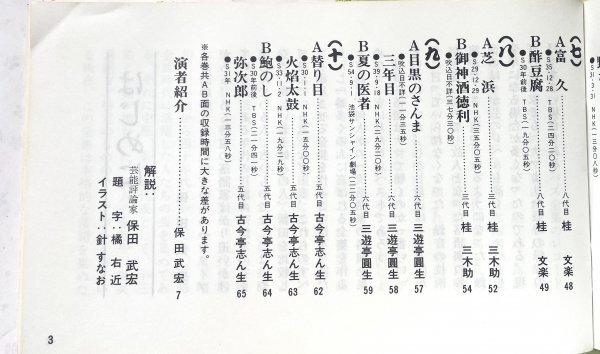 (七)
A富久………八代目 桂 文楽 48
●S35・12・28 TBS(二四分二〇秒)
B酢豆腐………八代目 桂 文楽 49
●S30年前後 TBS(一九分五〇秒)
(八)
A芝浜………三代目 桂 三木助 52
●S29・12・29 NHK(二五分〇五秒)
B御神酒徳利………三代目 桂 三木助 54
●吹込日不詳(三七分三〇秒)
(九)
A目黒のさんま………六代目 三遊亭圓生 57
●吹込日不詳(一一分三五秒)
三年目………六代目 三遊亭圓生 58
●S39・9・18 NHK(一九分三〇秒)
B夏の医者………六代目 三遊亭圓生 59
●S54・9・1 池袋サンシャイン劇場(二二分〇五秒)
(十)
A替り目………五代目 古今亭志ん生 62
●S30・1・1 NHK(一五分〇〇秒)
火焰太鼓………五代目 古今亭志ん生 63
●S33・11・2 NHK(一九分二九秒)
B鮑のし………五代目 古今亭志ん生 64
●S30年前後 TBS(二一分四一秒)
弥次郎………五代目 古今亭志ん生 65
●S31年 NHK(一三分五八秒)
※各巻共AB面の収録時間に大きな差があります。
演者紹介………保田武宏 7
解説:芸能評論家 保田武宏
題字:橘右近
イラスト:針すなお
3